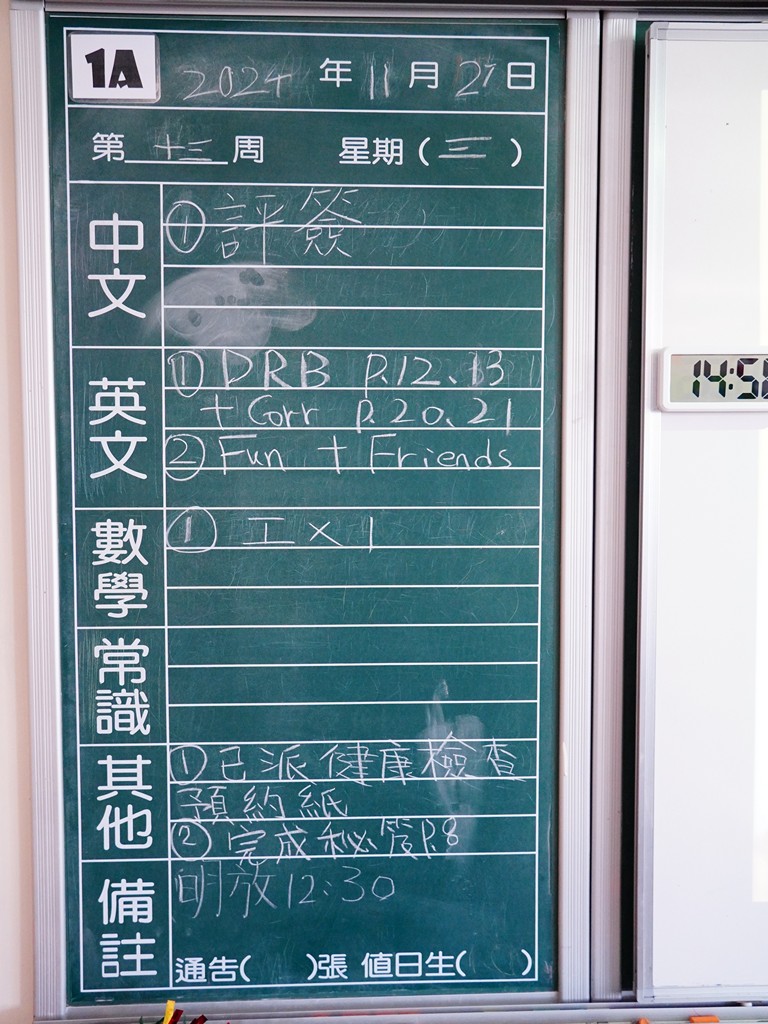 1A 2024年11月27日
第十三周 星期(三)
中文
① 評簽
英文
① DRB p.12.13
+ Corr p.20.21
② Fun + Friends
數學
① 工×1
常識
其他
① 已派健康檢查
預約紙
② 完成秘 P.8
備註
明放12:30
通告( )張 值日生( )